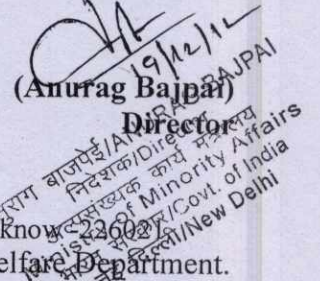 19/12/12
(Anurag Bajpai)
Director
अनुराग बाजपेई/ANURAG BAJPAI
निदेशक/Director
अल्पसंख्यक कार्य मंत्रालय
Ministry of Minority Affairs
भारत सरकार/Govt. of India
नई दिल्ली/New Delhi
know-226021
elfare Department.